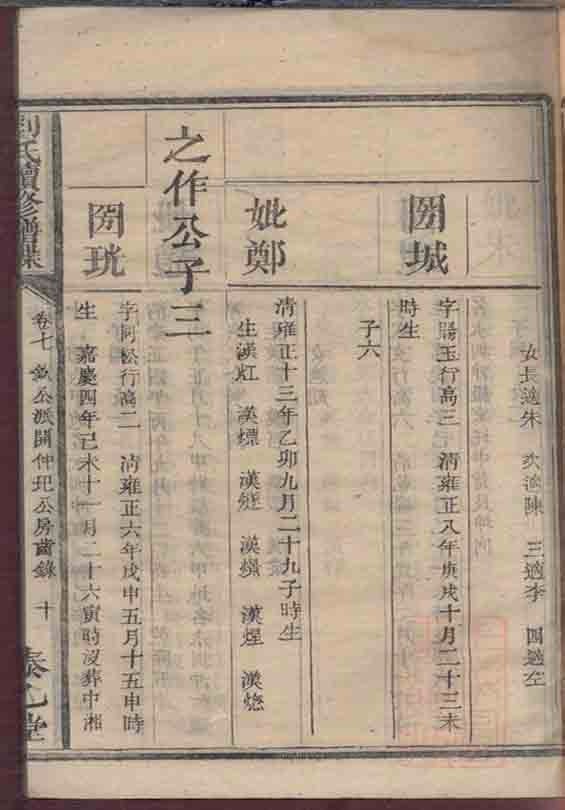 女長適朱 次適陳 三適李 四適左
圀城
字賜玉行高三 清雍正八年庚戌十月二十三未
時生
子六
妣鄭
清雍正十三年乙卯九月二十九子時生
生漢
之作公子三
圀珖
字阿松行高二 清雍正六年戊申五月十五申時
生 嘉慶四年己未十一月二十六寅時沒葬中湘
劉氏續修譜牒
卷七 公派開仲玘公房齒錄 十
堂